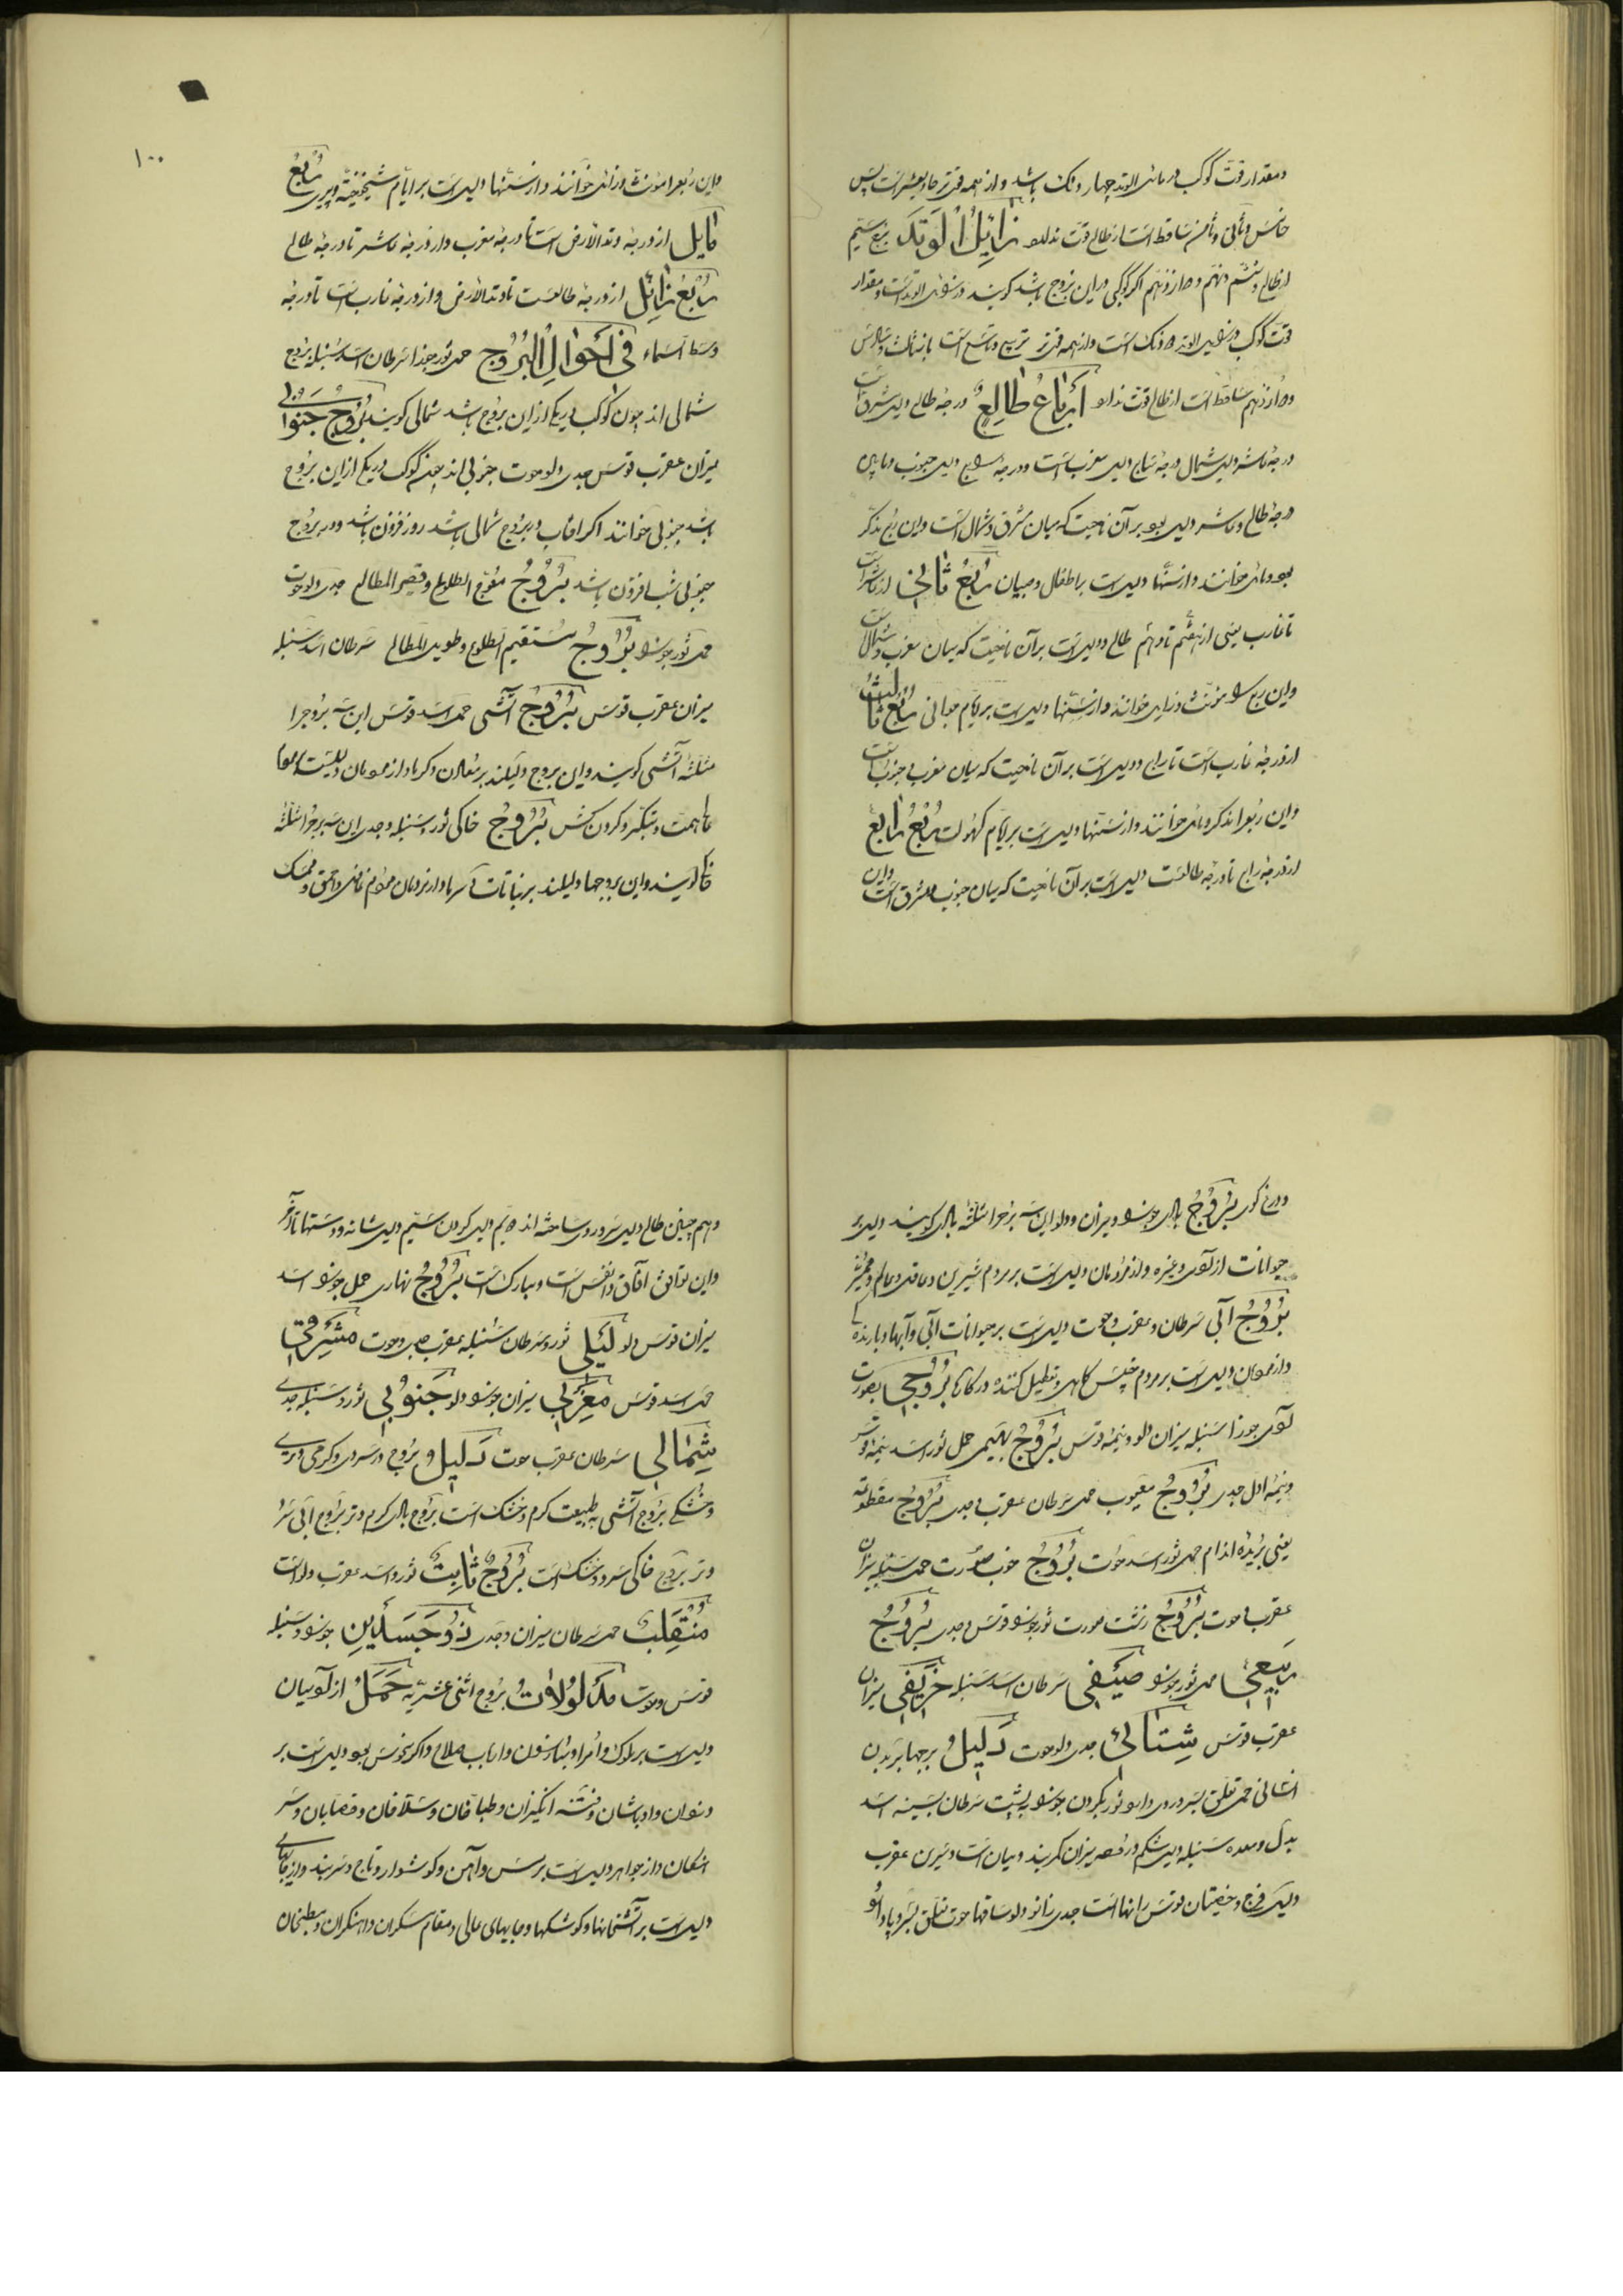 ومقدار قوت کوکب در مائل الوتد چهار دانک باشد و از همه قوی‌تر حادیعشر است پس
خامس و ثانی و ثامن ساقط است از طالع قوت ندارد زائل الوتد برج سیم
از طالع و ششم و نهم و دوازدهم اگر کوکبی در این بروج باشد کویند در زائل الوتد است و مقدار
قوت کوکب در زائل الوتد دو دانک است و از همه قوی‌تر تاسع است باز ثالث و سادس
و دوازدهم ساقط است از طالع قوت ندارد ارباع طالع درجهٔ طالع دلیل مشرق است
درجهٔ عاشر دلیل شمال درجهٔ سابع دلیل مغرب است و درجهٔ رابع دلیل جنوب و مابین
درجهٔ طالع و عاشر دلیل بود بر آن ناحیت که میان مشرق و شمال است و این ربع مذکر
بود و مائل خوانند و از سنّها دلیل است بر اطفال و صبیان ربع ثانی از عاشر است
تا غارب یعنی از هفتم تا دهم طالع و دلیل است بر آن ناحیت که میان مغرب و شمال است
و این ربع را مؤنث و زایل خوانند و از سنّها دلیل است بر ایام جوانی ربع ثالث
از درجهٔ غارب است تا رابع و دلیل است بر آن ناحیت که میان مغرب و جنوب است
و این ربع را مذکر و مائل خوانند و از سنّها دلیل است بر ایام کهولت ربع رابع
از درجهٔ رابع تا درجهٔ طالعست دلیل است بر آن ناحیت که میان جنوب و مشرق است و این
۱۰۰
و این ربع را مؤنث و زائل خوانند و از سنّها دلیل است بر ایام شیخیخة و پیری ربع
مایل از درجهٔ وتد الارض است تا درجهٔ مغرب و از درجهٔ عاشر تا درجهٔ طالع
ربع زائل از درجهٔ طالعست تا وتد الارض و از درجهٔ غارب است تا درجهٔ
وسط السماء فی احوال البروج حمل ثور جوزا سرطان اسد سنبله بروج
شمالی اند چون کوکب در یکی از این بروج باشد شمالی کویند بروج جنوبی
میزان عقرب قوس جدی دلو حوت جنوبی اند چون کوکب در یکی از این بروج
باشد جنوبی خوانند اکر آفتاب در بروج شمالی باشد روز فزون باشد و در بروج
جنوبی شب افزون باشد بروج معوج الطلوع و قصیر المطالع جدی دلو حوت
حمل ثور جوزا بروج مستقیم الطلوع و طویل المطالع سرطان اسد سنبله
میزان عقرب قوس بروج آتشی حمل اسد قوس این سه بروج را
مثلثهٔ آتشی کویند و این بروج دلیلند بر معادن و کرما و از مردمان
با همت و متکبر و کردن کش بروج خاکی ثور و سنبله و جدی این سه برج را مثلثهٔ
خاکی کویند و این برجها دلیلند بر نباتات و سرما و از مردمان
بروج بادی جوزا و میزان و دلو این سه برج را مثلثهٔ بادی کویند دلیل بر
حیوانات از آدمی و غیره و از مردمان دلیل است بر مردم شیرین و عاقل و عالم
بروج آبی سرطان و عقرب و حوت دلیل است بر حیوانات آبی و آبها و بارنده
و از مردمان دلیل است بر مردم کاهل و تعطیل کننده در کارها بروجی بصورت
آدمی جوزا سنبله میزان دلو و نیمهٔ قوس بروج بهیمی حمل ثور اسد نیمهٔ قوس
و نیمهٔ اول جدی بروج معیوب حمل سرطان عقرب جدی بروج مقطوعه
یعنی بریده اندام حمل ثور اسد حوت بروج خوب صورت حمل سنبله میزان
عقرب حوت بروج زشت صورت ثور جوزا قوس جدی بروج
ربیعی حمل ثور جوزا صیفی سرطان اسد سنبله خریفی میزان
عقرب قوس شتائی جدی دلو حوت دلیل برجها بر بدن
انسانی حمل تعلق بسر و روی دارد ثور بکردن جوزا به پشت سرطان بسینه اسد
بدل و معده سنبله دلیل شکم میزان کمربند و میان است و سرین عقرب
دلیل فرج و خصیتان قوس رانها است جدی زانو دلو ساقها حوت تعلق بسر و پا دارد
و هم چنین طالع دلیل سر و روی ساخته اند دویم دلیل کردن سیم دلیل شانه و دستها تا آخر
و این توافق آفاق و انفس است و مبارک است بروج نهاری حمل جوزا اسد
میزان قوس دلو لیلی ثور و سرطان سنبله عقرب جدی حوت مشرقی
حمل اسد قوس مغربی میزان جوزا دلو جنوبی ثور و سنبله جدی
شمالی سرطان عقرب حوت دلیل بروج در سردی و کرمی و تری
و خشکی بروج آتشی به طبیعت کرم و خشک است بروج بادی کرم و تر بروج آبی سرد
و تر بروج خاکی سرد و خشک است بروج ثابت ثور و اسد عقرب دلو است
منقلب حمل سرطان میزان و جدی ذو جسدین جوزا و سنبله
قوس و حوت مدلولات بروج اثنی عشریه حمل از آدمیان
دلیل است بر ملوک و امرا و مبارزان و ارباب سلاح و اکر نحوس بود دلیل است بر
دزدان و اوباشان و فتنه انگیزان و طباخان و سلاخان و قصابان و سر
اشکان و از جواهر دلیل است بر مس و آهن و کوشوار و تاج و سربند و از جایها
دلیل است بر آتشخانها و کوشکها و جایهای عالی و مقام مسکران و آهنکران و مطبخها